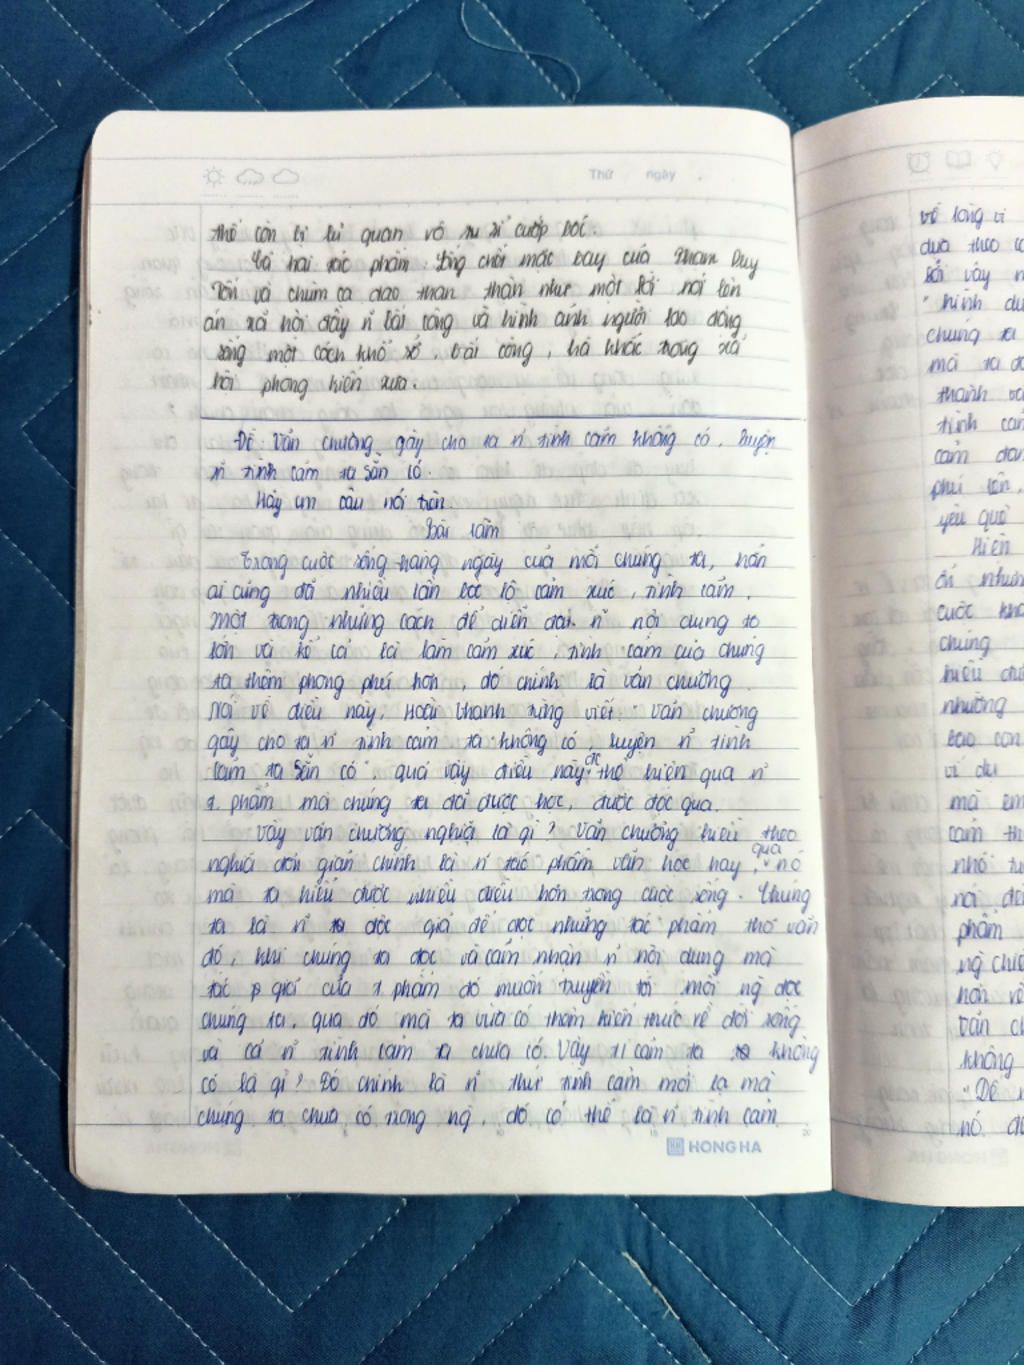 Thứ ngày .
thế còn bị lũ quan vô xu xỉ cướp bóc.
Cả hai tác phẩm Sống chết mặc bay của Phạm Duy
Tốn và chùm ca dao than thân như một lời nói lên
án xã hội đầy n~ bất công và hình ảnh người lao động
sống một cách khổ sở, bất công, hà khắc trong xã
hội phong kiến xưa.
Đề: Văn chương gây cho ta n~ tình cảm không có, luyện
n~ tình cảm ta sẵn có.
Hãy cm câu nói trên
Bài làm
Trong cuộc sống hàng ngày của mỗi chúng ta, hẳn
ai cũng đã nhiều lần bộc lộ cảm xúc, tình cảm,
một trong những cách để diễn đạt n~ nội dung to
lớn và kể cả là làm cảm xúc, tình cảm của chúng
ta thêm phong phú hơn, đó chính là văn chương.
Nói về điều này, Hoài Thanh từng viết: "Văn chương
gây cho ta n~ tình cảm ta không có, luyện n~ tình
cảm ta sẵn có", quả vậy điều này đc thể hiện qua n~
t. phẩm mà chúng ta đã được học, được đọc qua.
Vậy văn chương nghĩa là gì? Văn chương hiểu theo
nghĩa đơn giản chính là n~ tác phẩm văn học hay, qua nó
mà ta hiểu được nhiều điều hơn trong cuộc sống. Chúng
ta là n~ độc giả để đọc những tác phẩm thơ văn
đó, khi chúng ta đọc và cảm nhận n~ nội dung mà
tác giả của t. phẩm đó muốn truyền tới mỗi ng đọc
chúng ta, qua đó mà ta vừa có thêm kiến thức về đời sống
và cả n~ tình cảm ta chưa có. Vậy t/cảm ta không
có là gì? Đó chính là n~ thứ tình cảm mới lạ mà
chúng ta chưa có trong ng, đó có thể là n~ tình cảm
HONG HA
về lòng vị
dựa theo
bởi vậy
"hình
chúng ta
mà ta
thành
tình
cảm
phú lên,
yêu quê
Hiện
ổi
cuộc
chúng
hiểu
những
bao con
ví dụ
mà em
cảm
nhỏ
nói
phẩm
ng
hơn về
văn
không
"Dế
nó